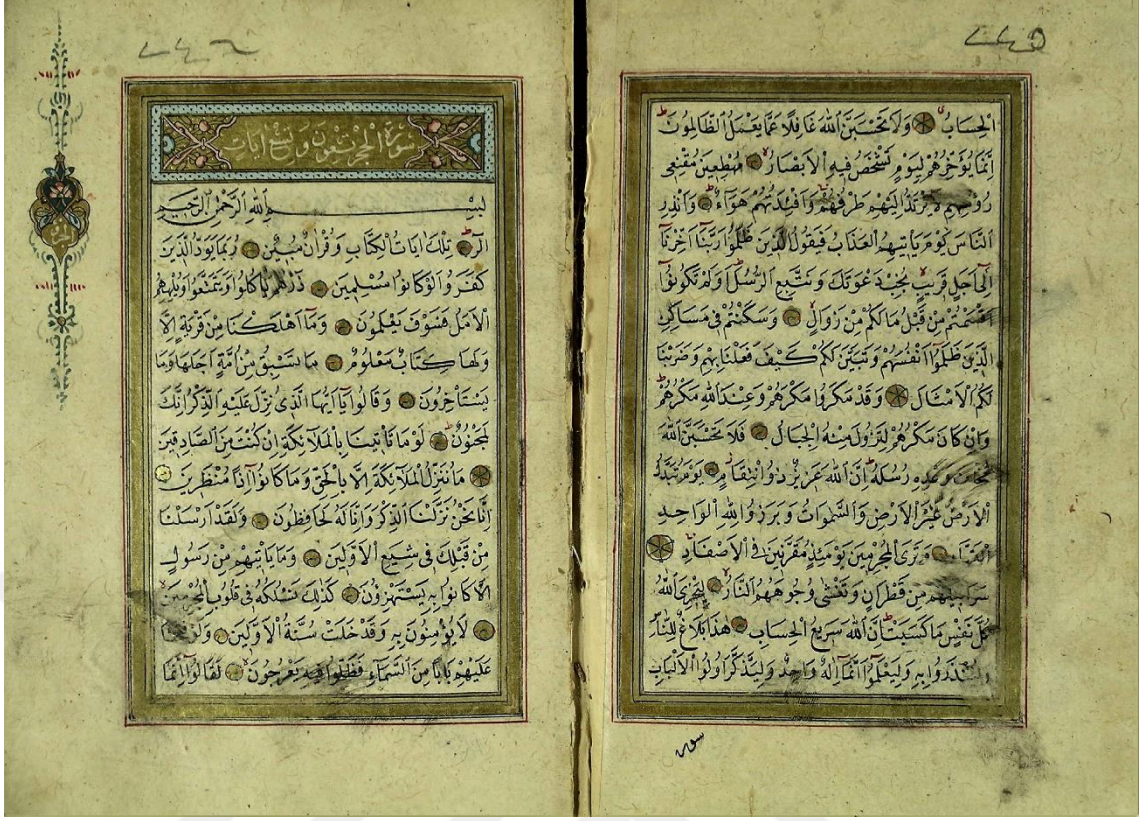 الْحِسَابُ وَلَا تَحْسَبَنَّ اللّٰهَ غَافِلًا عَمَّا يَعْمَلُ الظَّالِمُونَ
اِنَّمَا يُؤَخِّرُهُمْ لِيَوْمٍ تَشْخَصُ فِيهِ الْاَبْصَارُ مُهْطِعِينَ مُقْنِعِى
رُؤُسِهِمْ لَا يَرْتَدُّ اِلَيْهِمْ طَرْفُهُمْ وَاَفْئِدَتُهُمْ هَوَآءٌ وَاَنْذِرِ
النَّاسَ يَوْمَ يَاْتِيهِمُ الْعَذَابُ فَيَقُولُ الَّذِينَ ظَلَمُوا رَبَّنَا اَخِّرْنَا
اِلٰٓى اَجَلٍ قَرِيبٍ نُجِبْ دَعْوَتَكَ وَنَتَّبِعِ الرُّسُلَ اَوَلَمْ تَكُونُوا
اَقْسَمْتُمْ مِنْ قَبْلُ مَا لَكُمْ مِنْ زَوَالٍ وَسَكَنْتُمْ فِى مَسَاكِنِ
الَّذِينَ ظَلَمُوا اَنْفُسَهُمْ وَتَبَيَّنَ لَكُمْ كَيْفَ فَعَلْنَا بِهِمْ وَضَرَبْنَا
لَكُمُ الْاَمْثَالَ وَقَدْ مَكَرُوا مَكْرَهُمْ وَعِنْدَ اللّٰهِ مَكْرُهُمْ
وَاِنْ كَانَ مَكْرُهُمْ لِتَزُولَ مِنْهُ الْجِبَالُ فَلَا تَحْسَبَنَّ اللّٰهَ
مُخْلِفَ وَعْدِهِ رُسُلَهُ اِنَّ اللّٰهَ عَزِيزٌ ذُو انْتِقَامٍ يَوْمَ تُبَدَّلُ
الْاَرْضُ غَيْرَ الْاَرْضِ وَالسَّمٰوَاتُ وَبَرَزُوا لِلّٰهِ الْوَاحِدِ
الْقَهَّارِ وَتَرَى الْمُجْرِمِينَ يَوْمَئِذٍ مُقَرَّنِينَ فِى الْاَصْفَادِ
سَرَابِيلُهُمْ مِنْ قَطِرَانٍ وَتَغْشٰى وُجُوهَهُمُ النَّارُ لِيَجْزِىَ اللّٰهُ
كُلَّ نَفْسٍ مَا كَسَبَتْ اِنَّ اللّٰهَ سَرِيعُ الْحِسَابِ هٰذَا بَلَاغٌ لِلنَّاسِ
وَلِيُنْذَرُوا بِهِ وَلِيَعْلَمُوا اَنَّمَا هُوَ اِلٰهٌ وَاحِدٌ وَلِيَذَّكَّرَ اُولُوا الْاَلْبَابِ
سورة
سُورَةُ الْحِجْرِ تِسْعُونَ وَتِسْعُ اٰيَاتٍ
بِسْمِ اللّٰهِ الرَّحْمٰنِ الرَّحِيمِ
الٓرٰ تِلْكَ اٰيَاتُ الْكِتَابِ وَقُرْاٰنٍ مُبِينٍ رُبَمَا يَوَدُّ الَّذِينَ
كَفَرُوا لَوْ كَانُوا مُسْلِمِينَ ذَرْهُمْ يَاْكُلُوا وَيَتَمَتَّعُوا وَيُلْهِهِمُ
الْاَمَلُ فَسَوْفَ يَعْلَمُونَ وَمَآ اَهْلَكْنَا مِنْ قَرْيَةٍ اِلَّا
وَلَهَا كِتَابٌ مَعْلُومٌ مَا تَسْبِقُ مِنْ اُمَّةٍ اَجَلَهَا وَمَا
يَسْتَاْخِرُونَ وَقَالُوا يَآ اَيُّهَا الَّذِى نُزِّلَ عَلَيْهِ الذِّكْرُ اِنَّكَ
لَمَجْنُونٌ لَوْ مَا تَاْتِينَا بِالْمَلٰٓئِكَةِ اِنْ كُنْتَ مِنَ الصَّادِقِينَ
مَا نُنَزِّلُ الْمَلٰٓئِكَةَ اِلَّا بِالْحَقِّ وَمَا كَانُوا اِذًا مُنْظَرِينَ
اِنَّا نَحْنُ نَزَّلْنَا الذِّكْرَ وَاِنَّا لَهُ لَحَافِظُونَ وَلَقَدْ اَرْسَلْنَا
مِنْ قَبْلِكَ فِى شِيَعِ الْاَوَّلِينَ وَمَا يَاْتِيهِمْ مِنْ رَسُولٍ
اِلَّا كَانُوا بِهِ يَسْتَهْزِؤُنَ كَذٰلِكَ نَسْلُكُهُ فِى قُلُوبِ الْمُجْرِمِينَ
لَا يُؤْمِنُونَ بِهِ وَقَدْ خَلَتْ سُنَّةُ الْاَوَّلِينَ وَلَوْ فَتَحْنَا
عَلَيْهِمْ بَابًا مِنَ السَّمَآءِ فَظَلُّوا فِيهِ يَعْرُجُونَ لَقَالُوا اِنَّمَا